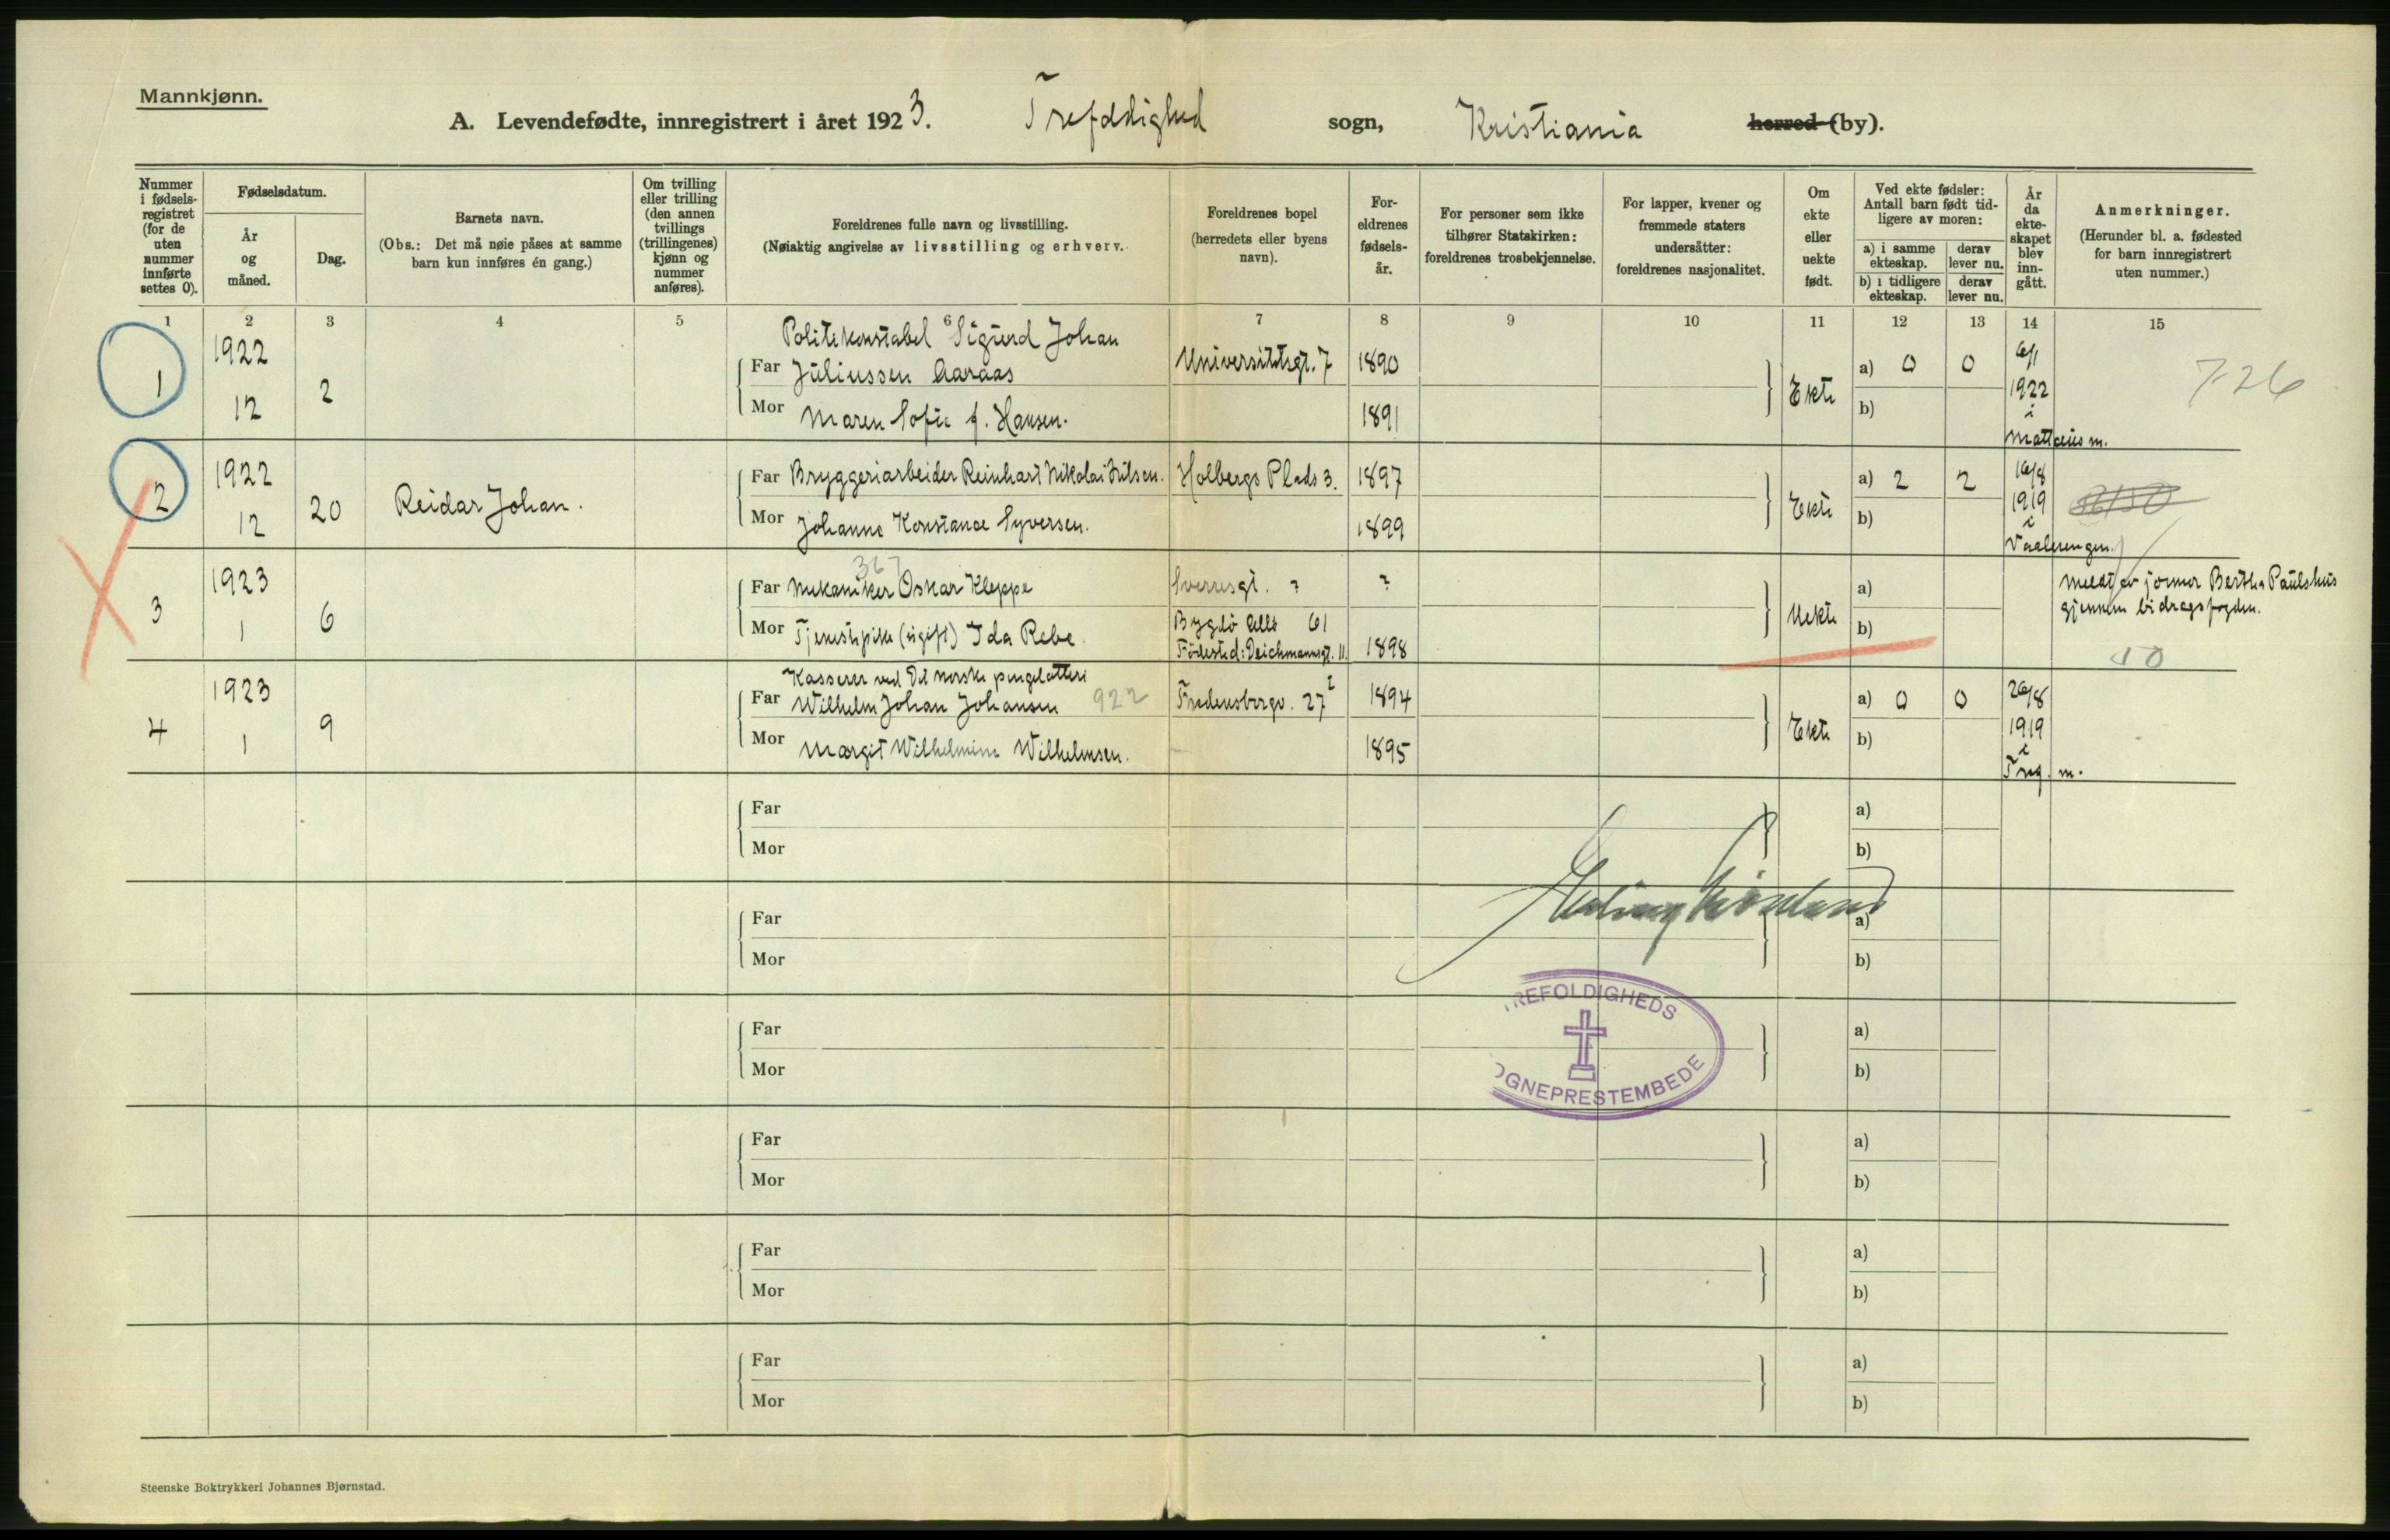 Mannkjønn.
A. Levendefødte, innregistrert i året 1923. Trefoldighed sogn, Kristiania herred (by).
Nummer i fødselsregistret (for de uten nummer innførte settes 0).
Fødselsdatum.
År og måned.
Dag.
Barnets navn.
(Obs.: Det må nøie påses at samme barn kun innføres én gang.)
Om tvilling eller trilling (den annen tvillings (trillingenes) kjønn og nummer anføres).
Foreldrenes fulle navn og livsstilling.
(Nøiaktig angivelse av livsstilling og erhverv.
Foreldrenes bopel (herredets eller byens navn).
Foreldrenes fødselsår.
For personer som ikke tilhører Statskirken: foreldrenes trosbekjennelse.
For lapper, kvener og fremmede staters undersåtter: foreldrenes nasjonalitet.
Om ekte eller uekte født.
Ved ekte fødsler: Antall barn født tidligere av moren:
a) i samme ekteskap. derav lever nu.
b) i tidligere ekteskap. derav lever nu.
År da ekteskapet blev inngått.
Anmerkninger.
(Herunder bl. a. fødested for barn innregistrert uten nummer.)
1 2 3 4 5 6 7 8 9 10 11 12 13 14 15
1 1922 12 2
Politikonstabel Sigurd Johan
Far Juliussen Aaraas Universitetsgt. 7 1890
Mor Maren Sofie f. Hansen. 1891
Ekte a) 0 0 6/1 1922 i Mattæus m. 726
b)
2 1922 12 20 Reidar Johan.
Far Bryggeriarbeider Reinhart Nikolai Nilsen. Holbergs Plads 3. 1897
Mor Johanne Konstance Syversen. 1899
Ekte a) 2 2 16/8 1919 i Vaalerengen.
b)
3 1923 1 6
367
Far Mekaniker Oskar Kleppe Sverresgt. ? ?
Mor Tjenestepike (ugift) Ida Rebe. Bygdö Allé 61
Fødested: Deichmannsgt. 11. 1898
Uekte a)
b)
Meldt av jormor Bertha Paulshus
gjennem bidragsfogden.
10
4 1923 1 9
Kasserer ved Det norske pengelotteri
Far Wilhelm Johan Johansen 922 Fredensborgv. 27 I 1894
Mor Margit Wilhelmine Wilhelmsen. 1895
Ekte a) 0 0 26/8 1919 i Treg. m.
b)
Far a)
Mor b)
Far a)
Mor b)
REFOLDIGHEDS
OGNEPRESTEMBEDE
Far a)
Mor b)
Far a)
Mor b)
Far a)
Mor b)
Far a)
Mor b)
Steenske Boktrykkeri Johannes Bjørnstad.